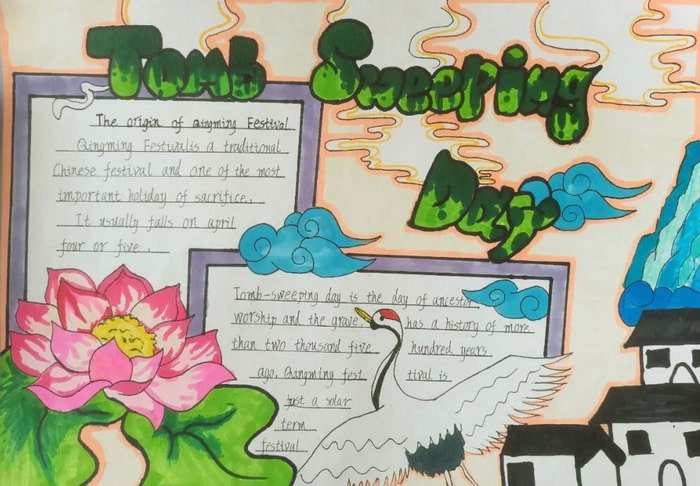 Tomb Sweeping
Day
The origin of Qingming Festival
Qingming Festivalis a traditional
Chinese festival and one of the most
important holiday of sacrifice.
It usually falls on april
four or five.
Tomb-sweeping day is the day of ancestor
worship and the grave, has a history of more
than two thousand five hundred years
ago. Qingming fest tival is
just a solar
term
festival